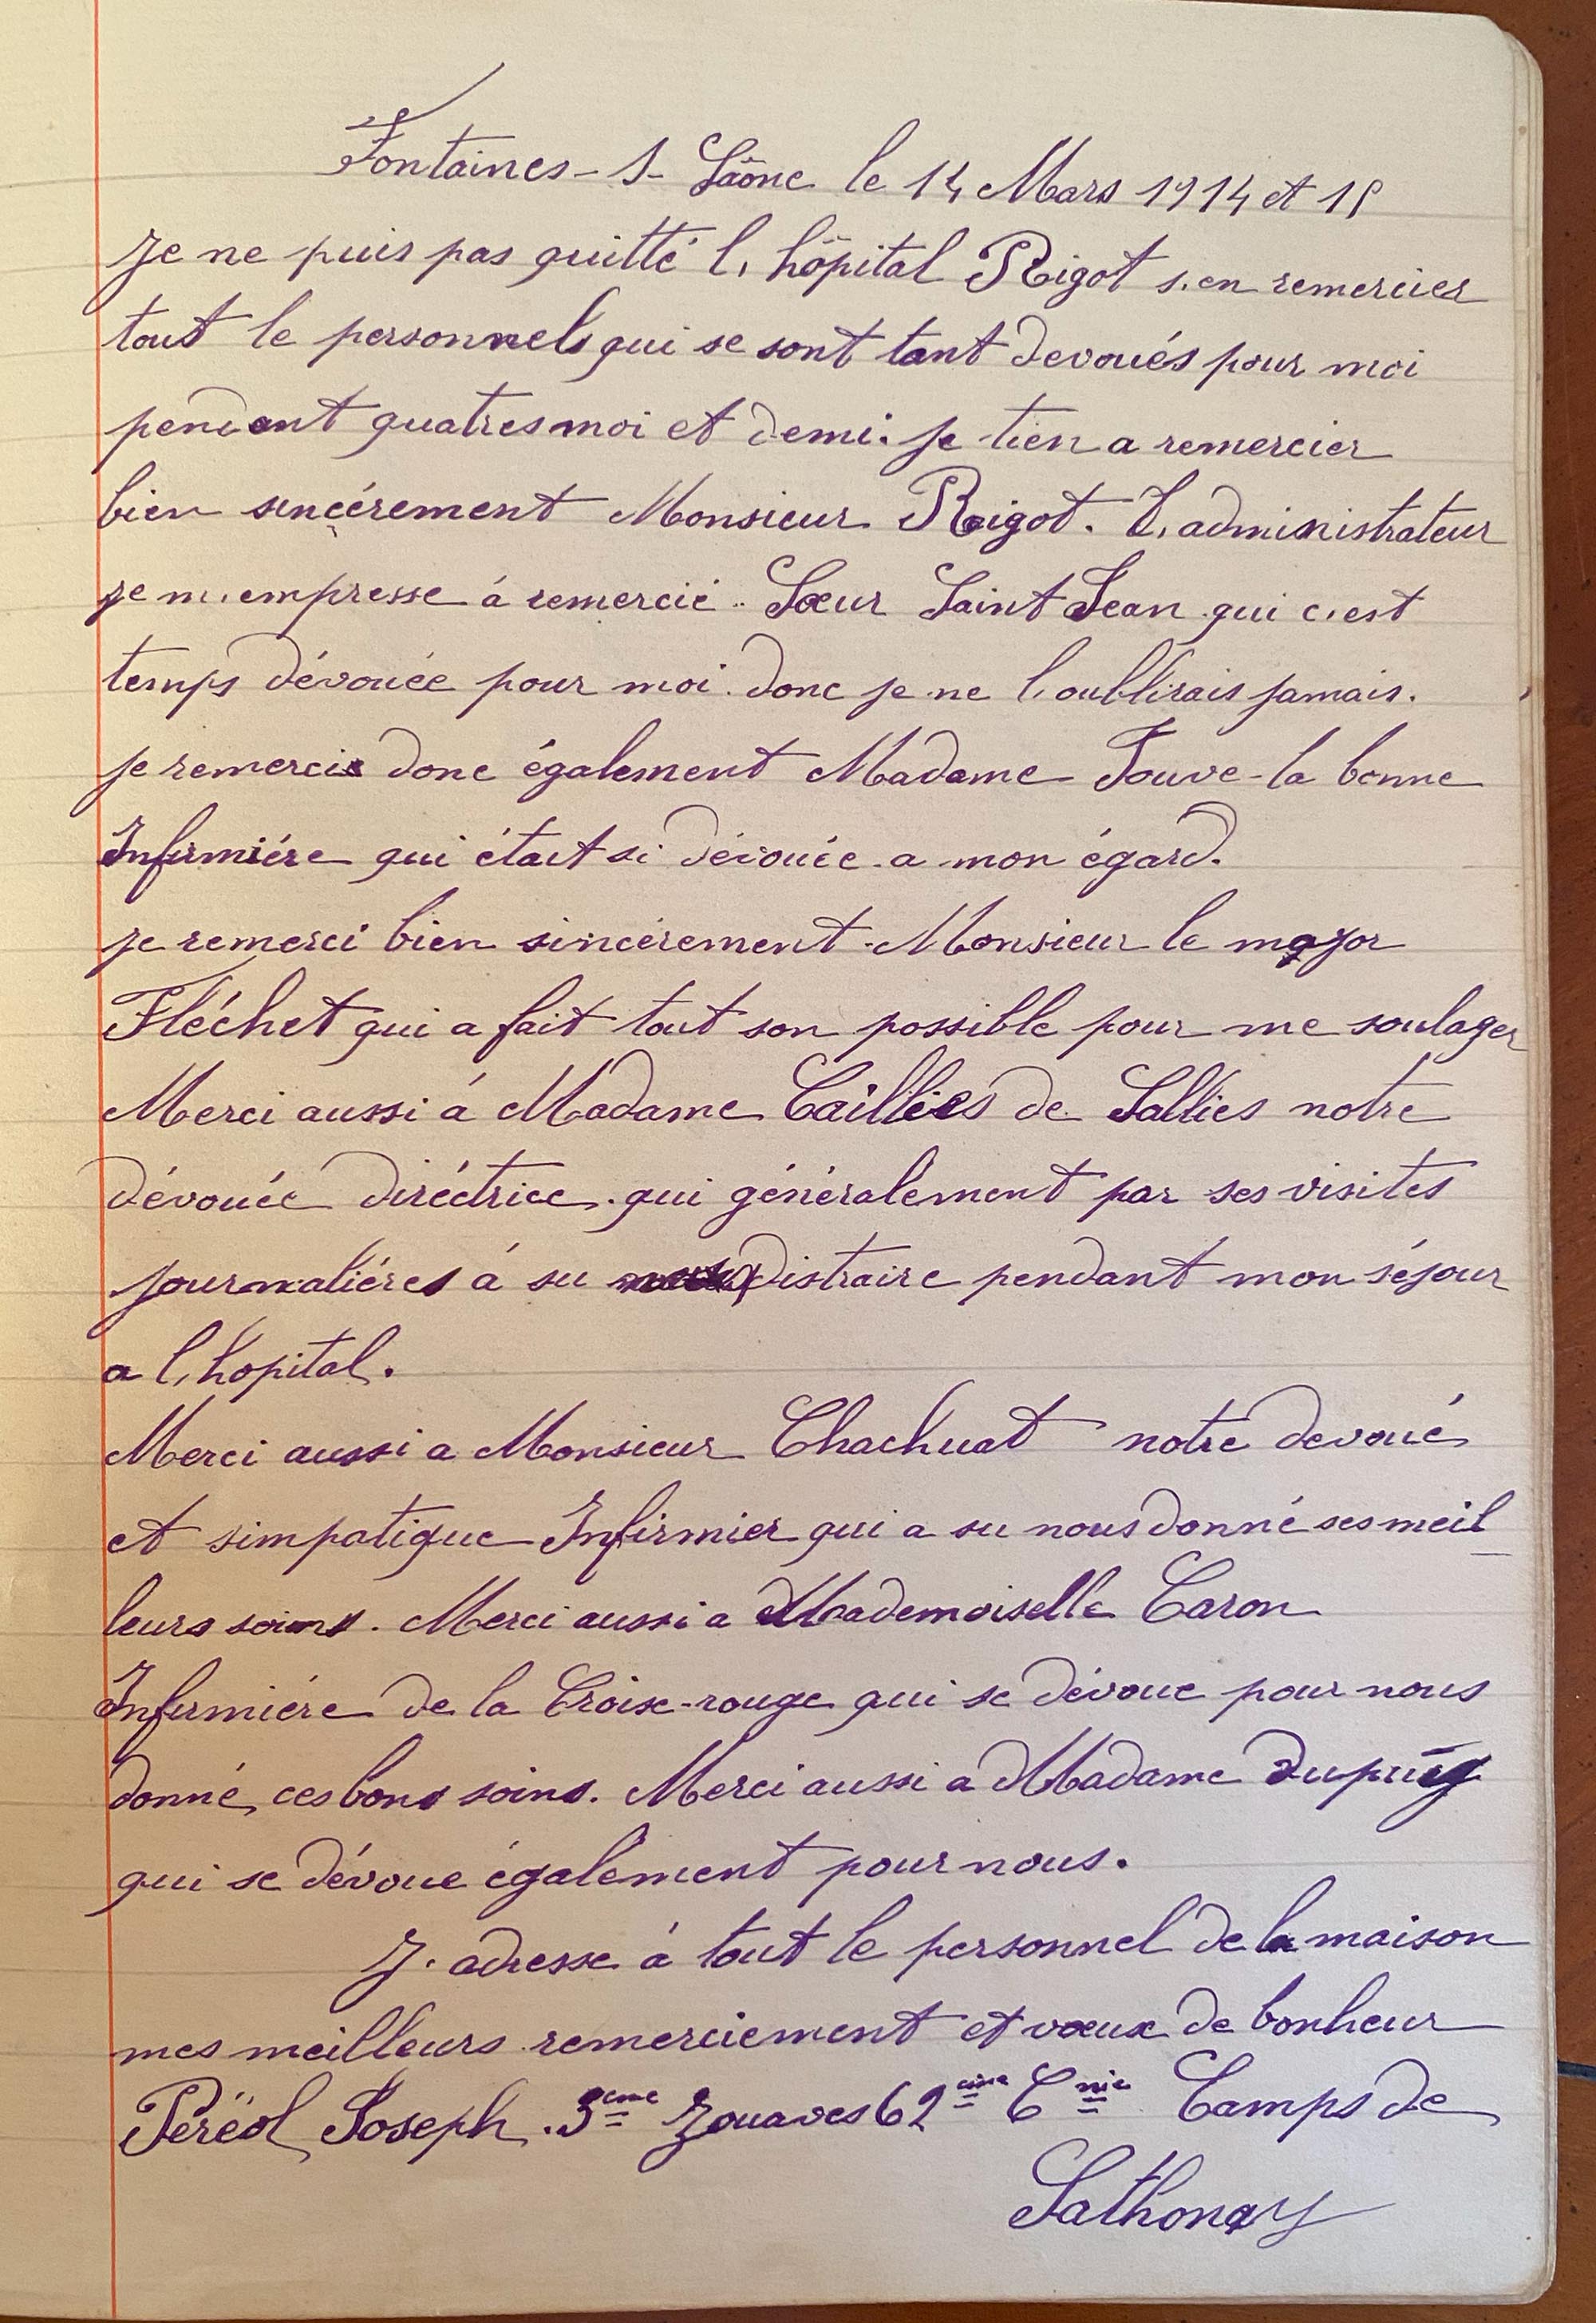 Fontaines - S - Saône le 14 Mars 1914 et 15
Je ne puis pas quitté l, hôpital Rigot s.en remercier
tout le personnels qui se sont tant devoués pour moi
pendant quatres moi et demi. je tien a remercier
bien sincérement Monsieur Rigot. L, administrateur
je m, empresse á remercié Sœur Saint Jean qui c, est
temps dévouée pour moi. donc je ne l, oublirais jamais.
je remercie donc également Madame Jouve - la bonne
Infirmiére qui était si dévouée a mon égard.
je remerci bien sincérement Monsieur le major
Fléchet qui a fait tout son possible pour me soulager
Merci aussi á Madame Cailliés de Sallies notre
dévouée diréctrice. qui généralement par ses visites
journaliéres á su distraire pendant mon séjour
a l, hopital.
Merci aussi a Monsieur Chachuat notre devoué
et simpatique Infirmier qui a su nous donné ses meil
leurs soins. Merci aussi a Mademoiselle Caron
Infirmiére de la Croix-rouge qui se dévoue pour nous
donné, ces bons soins. Merci aussi a Madame
qui se dévoue également pour nous.
J. adresse á tout le personnel de la maison
mes meilleurs remerciement et vœux de bonheur
Péréol Joseph. 3ème Zouaves 62ème Cnie Camps de
Sathonay